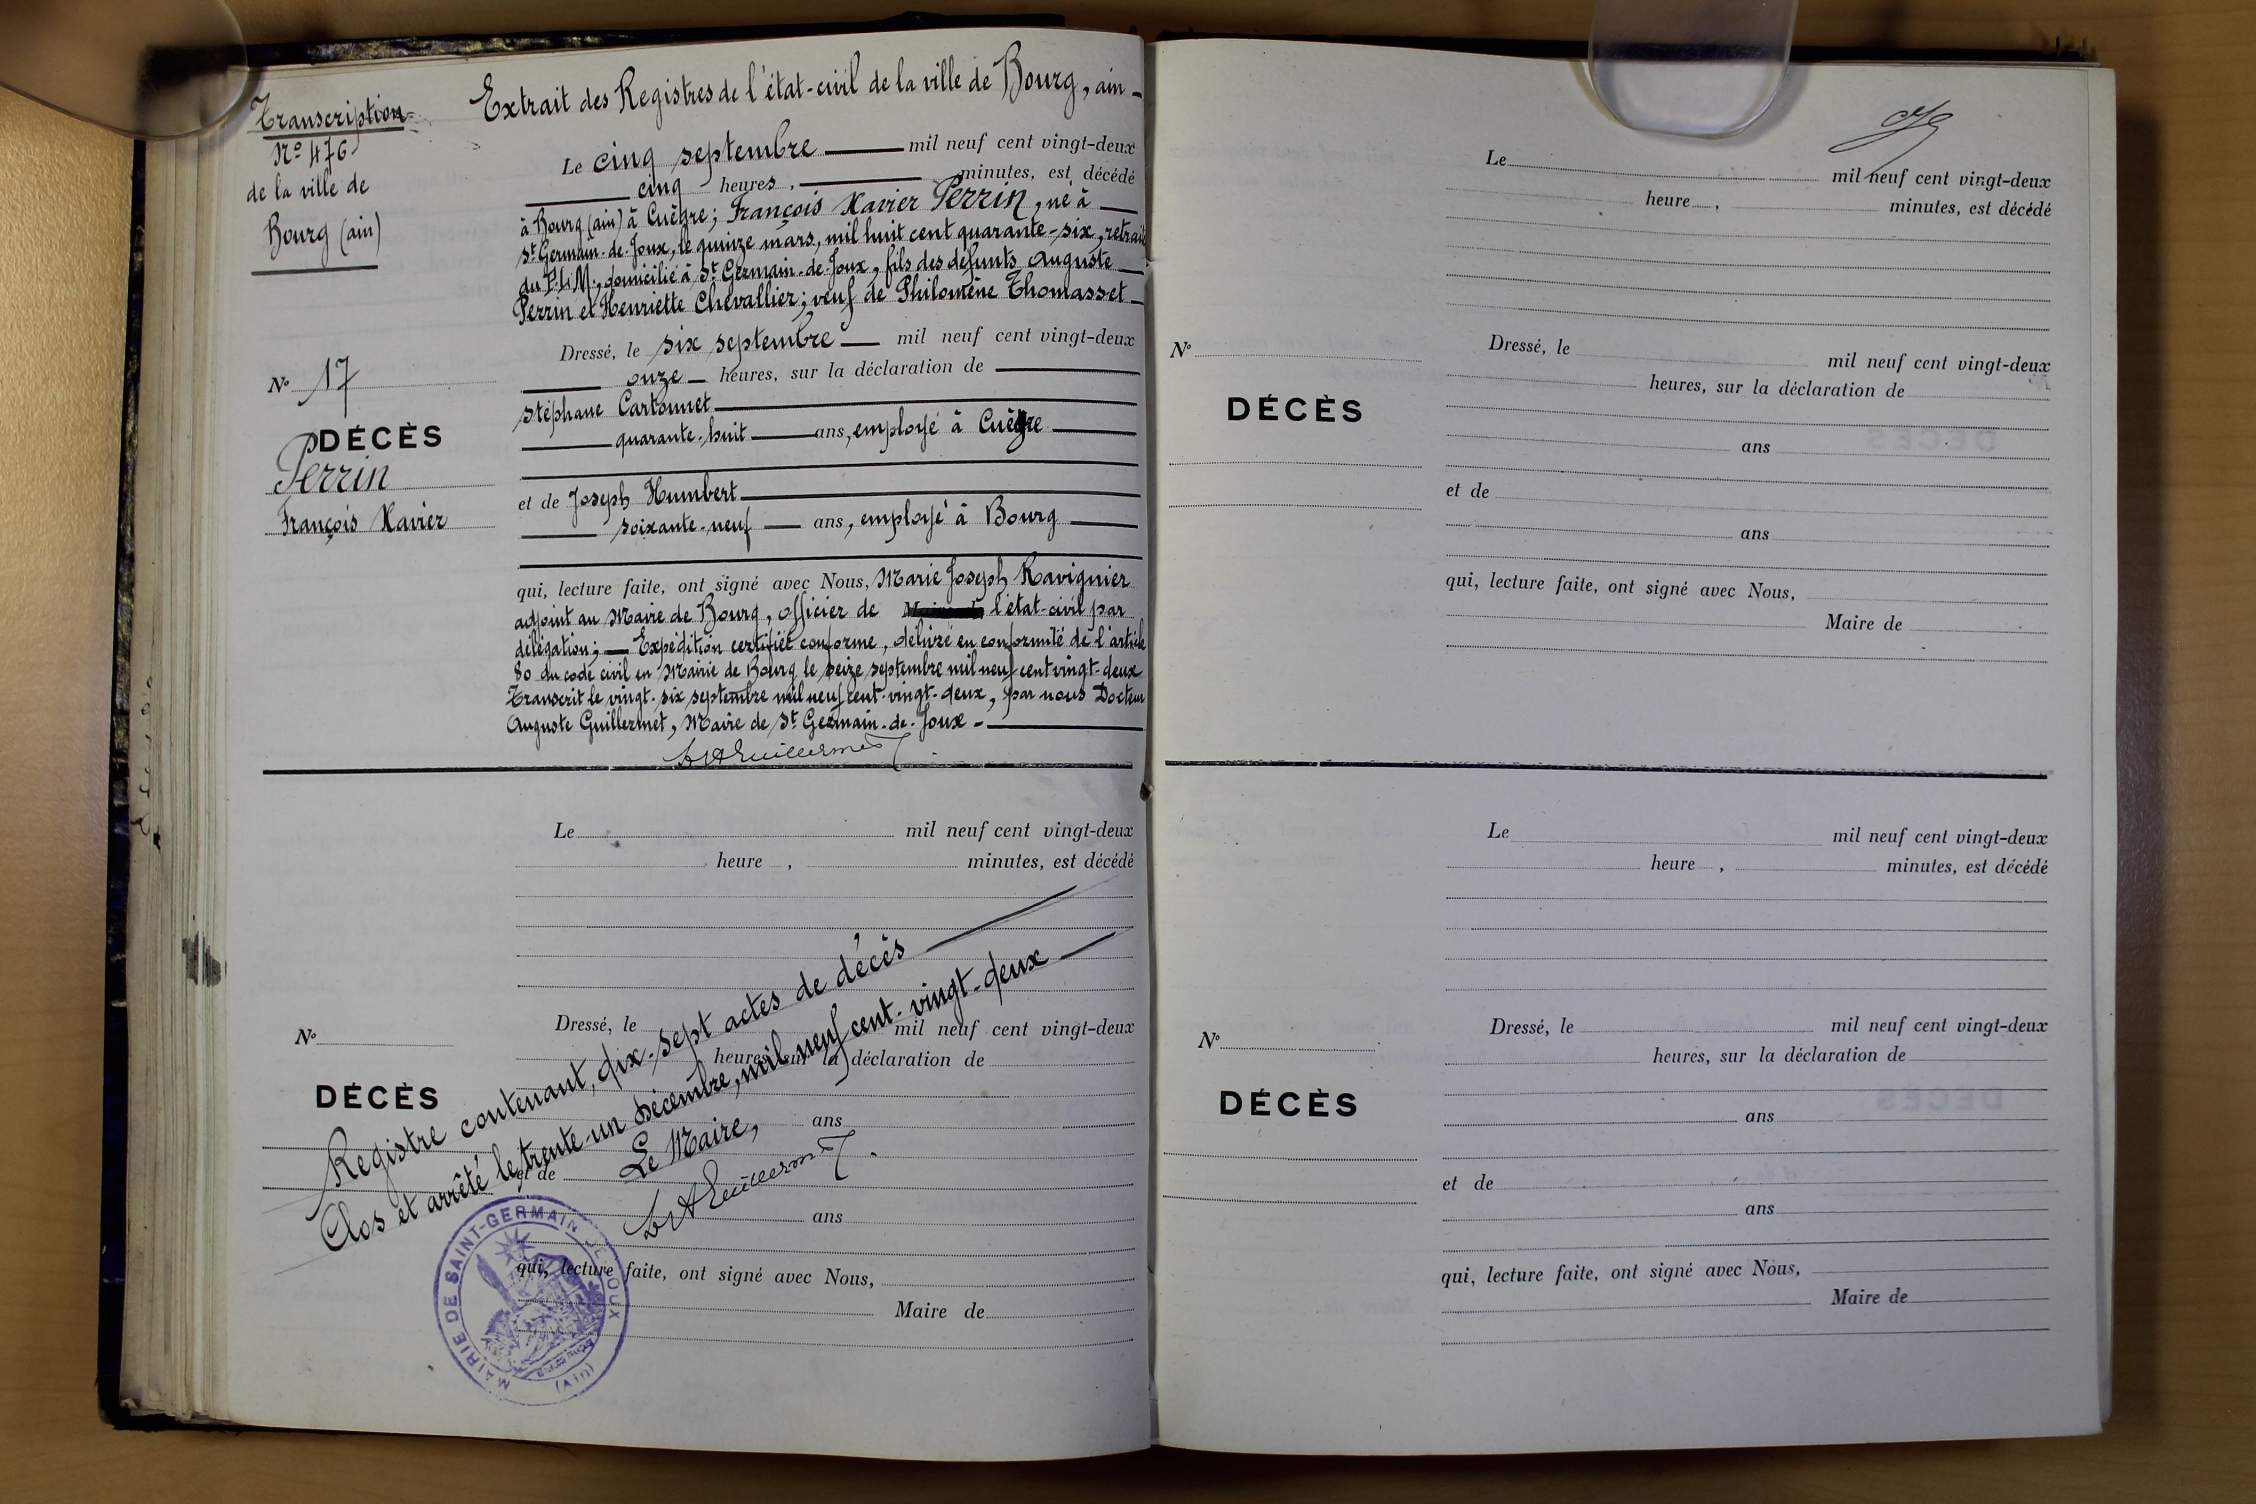 Transcription
N° 476
de la ville de
Bourg (ain)
Extrait des Registres de l'état-civil de la ville de Bourg, ain
Le cinq septembre mil neuf cent vingt-deux
cinq heures, minutes, est décédé
à Bourg (ain) à Cuègre; François Xavier Perrin, né à
St Germain-de-Joux, le quinze mars, mil huit cent quarante-six, retraité
du P.L.M., domicilié à St Germain-de-Joux, fils des défunts Auguste
Perrin et Henriette Chevallier; veuf de Philomène Thomasset
N° 17
DÉCÈS
Perrin
François Xavier
Dressé, le six septembre mil neuf cent vingt-deux
onze heures, sur la déclaration de
Stéphane Cartonnet
quarante-huit ans, employé à Cuègre
et de Joseph Humbert
soixante-neuf ans, employé à Bourg
qui, lecture faite, ont signé avec Nous, Marie Joseph Ravignier
adjoint au Maire de Bourg, officier de l'état-civil par
délégation; Expédition certifiée conforme, délivrée en conformité de l'article
80 du code civil en Mairie de Bourg le seize septembre mil neuf cent vingt-deux
Transcrit le vingt-six septembre mil neuf cent-vingt-deux, par nous Docteur
Auguste Guillermet, Maire de St Germain-de-Joux
Le mil neuf cent vingt-deux
heure, minutes, est décédé
N°
DÉCÈS
Dressé, le mil neuf cent vingt-deux
heures, sur la déclaration de
ans
et de
ans
qui, lecture faite, ont signé avec Nous,
Maire de
Registre contenant, dix-sept actes de décès
Clos et arrêté le trente-un Décembre, mil neuf cent-vingt-deux
Le Maire,
MAIRIE DE SAINT-GERMAIN DE JOUX
(AIN)
Le mil neuf cent vingt-deux
heure, minutes, est décédé
N°
DÉCÈS
Dressé, le mil neuf cent vingt-deux
heures, sur la déclaration de
ans
et de
ans
qui, lecture faite, ont signé avec Nous,
Maire de
Le mil neuf cent vingt-deux
heure, minutes, est décédé
N°
DÉCÈS
Dressé, le mil neuf cent vingt-deux
heures, sur la déclaration de
ans
et de
ans
qui, lecture faite, ont signé avec Nous,
Maire de